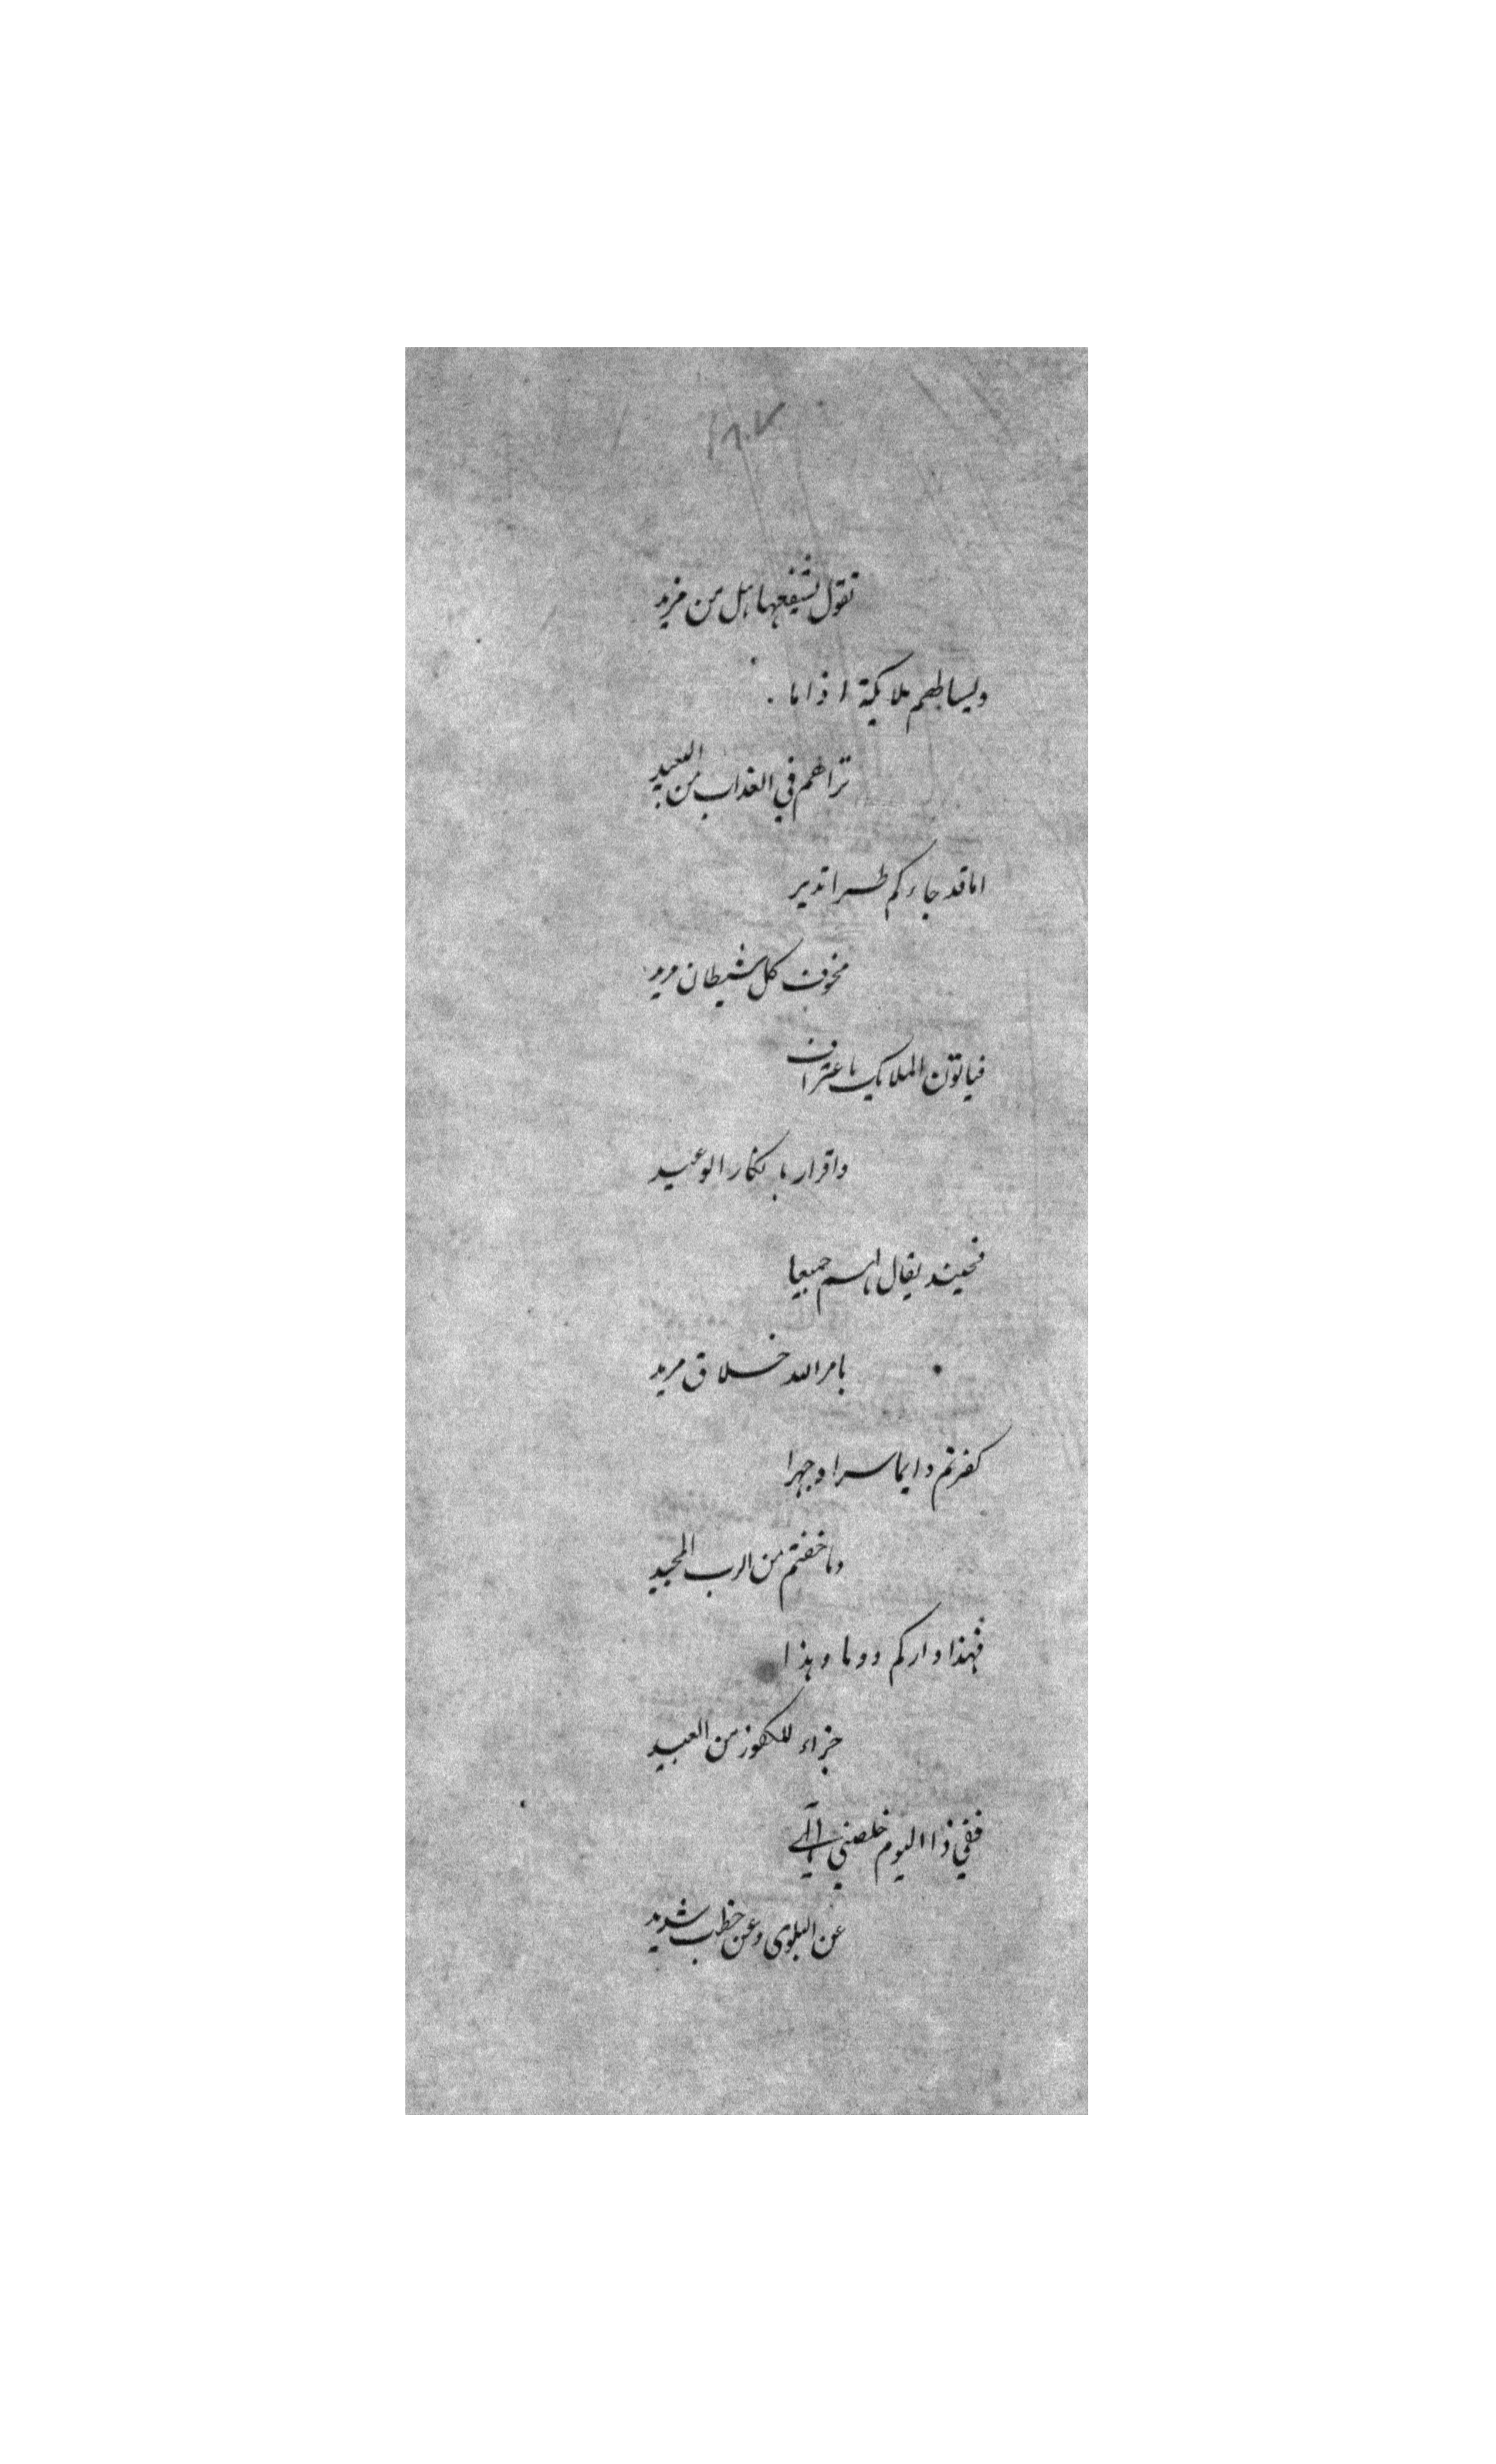 تقول لشفعها هل من مزيد
وليساطهم ملايكة اذاما
تراهم في العذاب من العبيد
اماقد جاءكم طرا نذير
مخوف كل شيطان مريد
فياتون الملايك باعتراف
واقرار بانكار الوعيد
فحينيذ يقال لهم جميعا
بامر الله خلاق مريد
كفرتم دايما سرا وجهرا
وما خفتم من الرب المجيد
فهذا داركم دوما وهذا
جزاء للكفور من العبيد
ففي ذا اليوم خلصني الهي
عن البلوى وعن خطب شديد